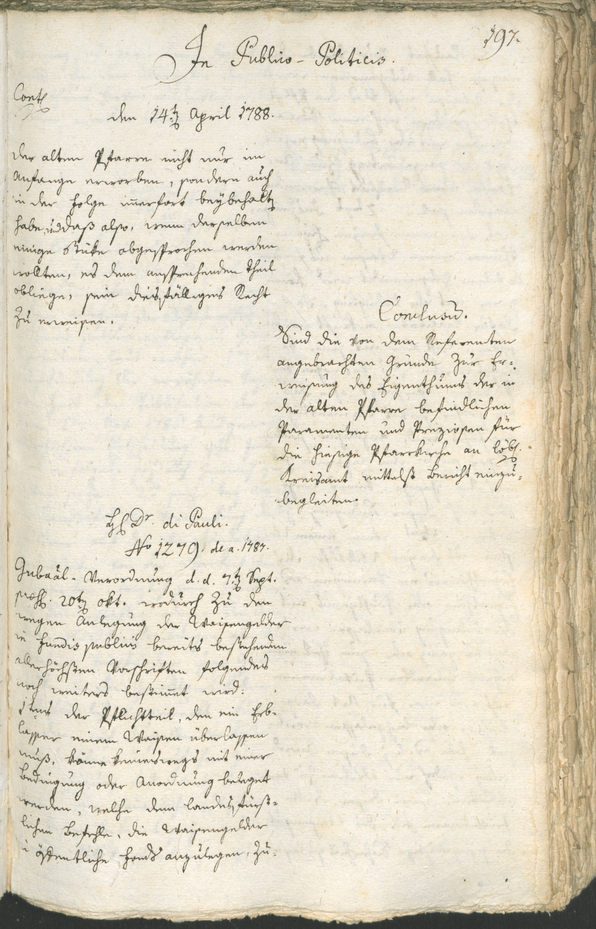 197.
In Publico-Politicis.
Cont
den 14t April 1788.
der alten Pfarre nicht nur im
Anfange erworben, sondern auch
in der Folge im̄erfort beybehalt
habe, u daß also, wenn derselben
einige Stüke abgesprochen werden
wollten, es dem ansprechenden Theil
obliege, sein diesfälliges Recht
zu erweisen.
Conclusū.
Sind die von dem Referenten
angebrachten Gründe zur Er=
weisung des Eigenthums der in
der alten Pfarre befindlichen
Paramenten und Preziosen für
die hiesige Pfarrkirche an löbl.
Kreisamt mittelst Bericht einzu=
begleiten.
H Dr. di Pauli.
No 1279. de a. 1787.
Gubnāl-Verordnung d. d. 7t Sept.
20t Okt. wodurch zu den
wegen Anlegung der Waisengelder
in fundis publicis bereits bestehenden
allerhöchsten Vorschriften folgendes
noch weiters bestim̄et wird:
der Pflichttheil, den ein Erb=
lasser einem Waisen überlassen
muß, könne keinerwegs mit einer
Bedingung oder Anordnung beleget
werden, welche dem landesfürst=
lichen Befehle, die Waisengelder
öffentliche Fonds anzulegen, zu=